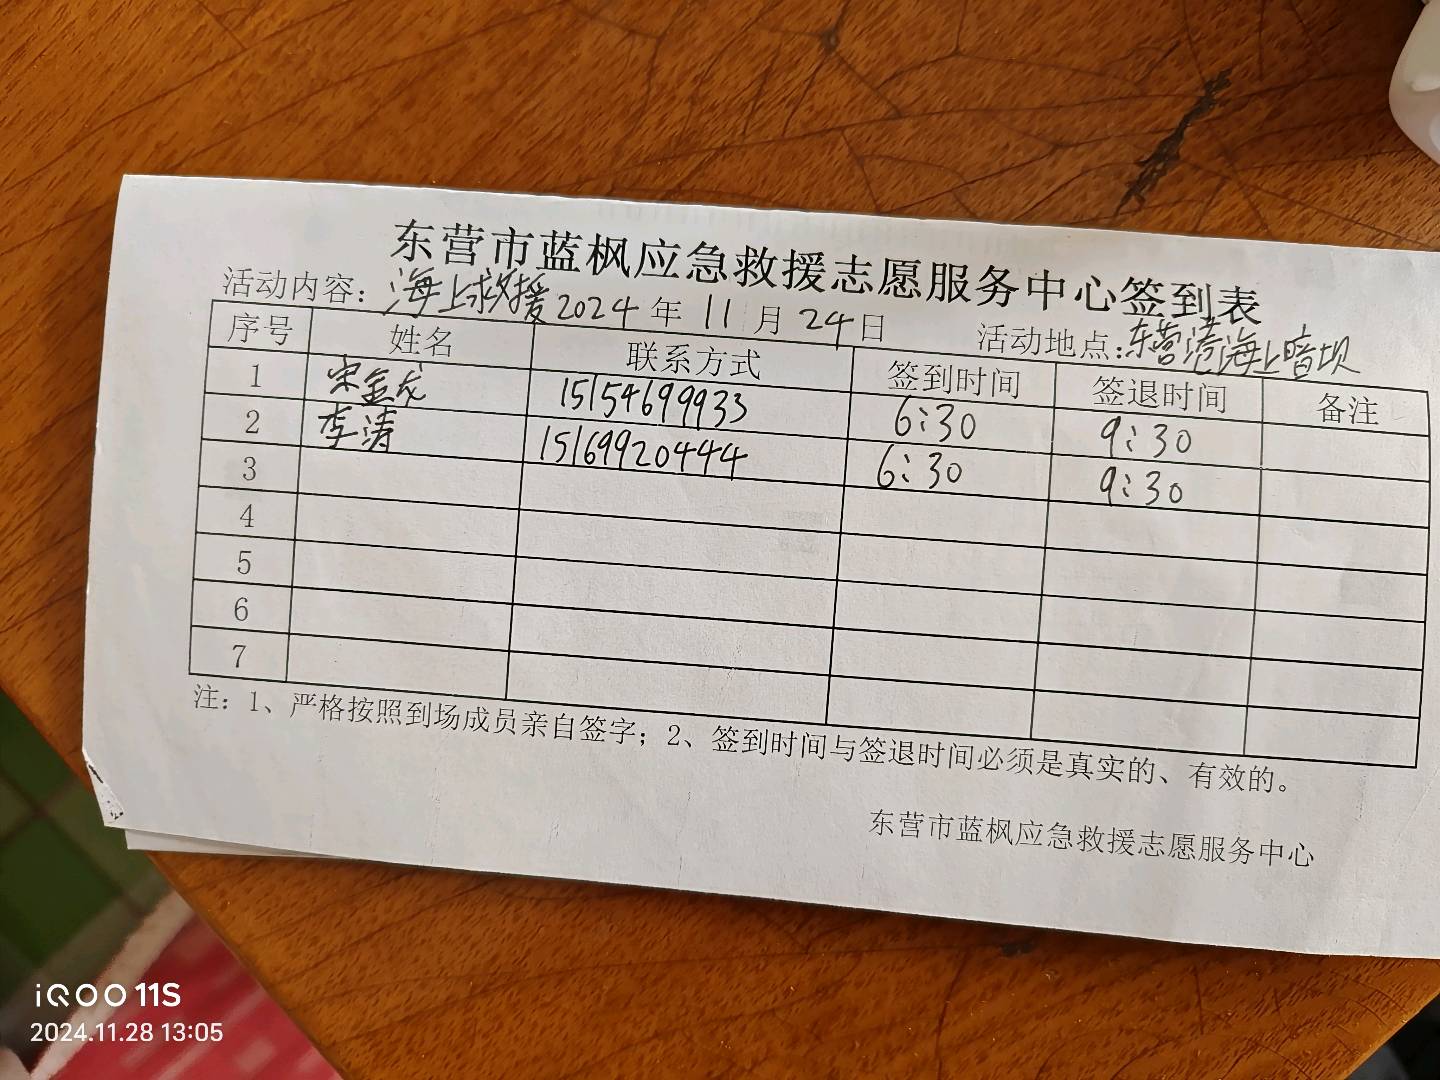 东营市蓝枫应急救援志愿服务中心签到表
活动内容：海上救援 2024年 11月 24日 活动地点：东营港海上暗坝
序号 姓名 联系方式 签到时间 签退时间 备注
1 宋金龙 15154699933 6:30 9:30
2 李涛 15169920444 6:30 9:30
3
4
5
6
7
注：1、严格按照到场成员亲自签字；2、签到时间与签退时间必须是真实的、有效的。
东营市蓝枫应急救援志愿服务中心
iQOO 11S
2024.11.28 13:05